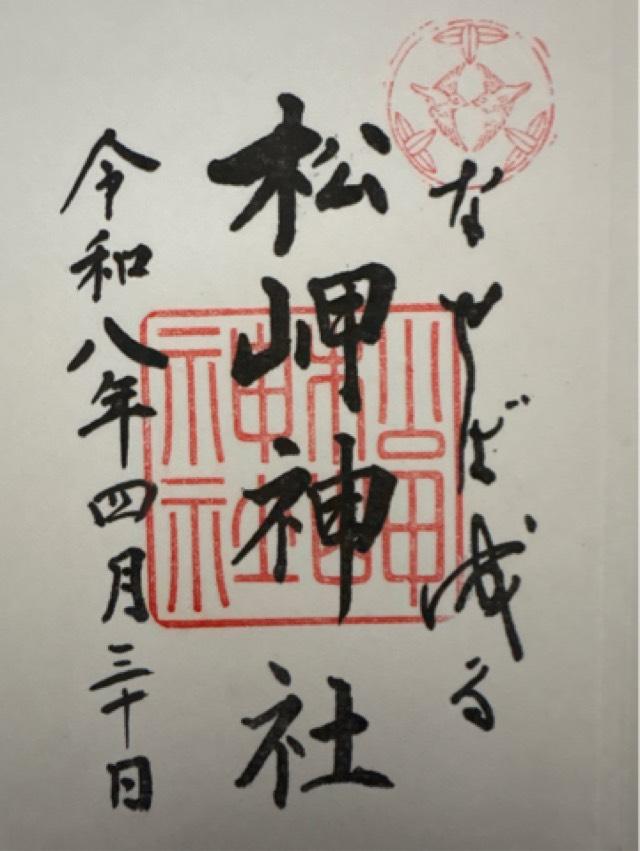 なせば成る
松岬神社
令和八年四月三十日
松岬神社